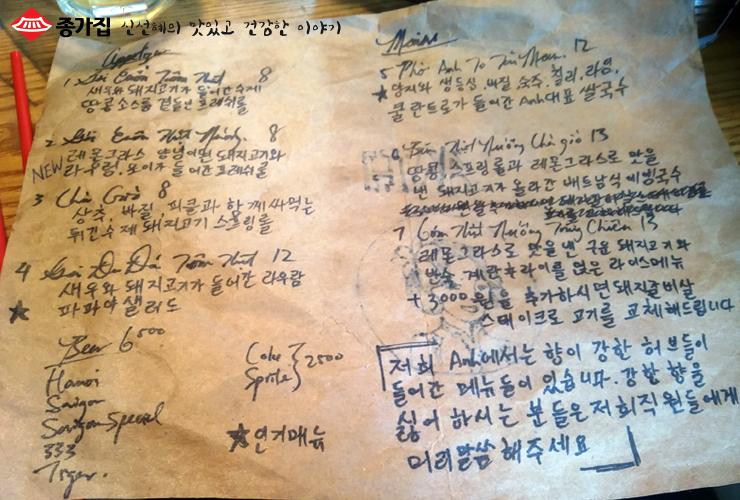 종가집 신선혜의 맛있고 건강한 이야기
Appetizer
1. Gỏi Cuốn Tôm Thịt 8
새우와 돼지고기가 들어간 수제
땅콩소스를 곁들인 프레쉬롤
2. Gỏi Cuốn Thịt Nướng. 8
NEW 레몬그라스 양념이된 돼지고기와
라우람, 오이가 들어간 프레쉬롤
3 Chả Giò 8
상추, 바질, 피클과 함께 싸먹는
튀긴 수제 돼지고기 스프링롤
4 Gỏi Đu Đủ Tôm Thịt 12
★ 새우와 돼지고기가 들어간 라우람
파파야 샐러드
Beer 6500
Hanoi
Saigon
Saigon Special
333
Tiger.
Coke
Sprite } 2500
★ 인기메뉴
Mains
5 Phở Anh 12
★ 양지와 생등심, 바질, 숙주, 칠리, 라임,
쿨란트로가 들어간 Anh대표 쌀국수
6 Bún Thịt Nướng Chả giò 13
땅콩, 스프링롤과 레몬그라스로 맛을
낸 돼지고기가 올라간 베트남식 비빔국수
7 Cơm Thịt Nướng Trứng Chiên 13
레몬그라스로 맛을 낸 구운 돼지고기와
반숙 계란후라이를 얹은 라이스메뉴
+3000원을 추가하시면 돼지갈비살
스테이크로 고기를 교체해드립니다
저희 Anh에서는 향이 강한 허브들이
들어간 메뉴들이 있습니다. 강한 향을
싫어 하시는 분들은 저희직원들에게
미리말씀 해주세요